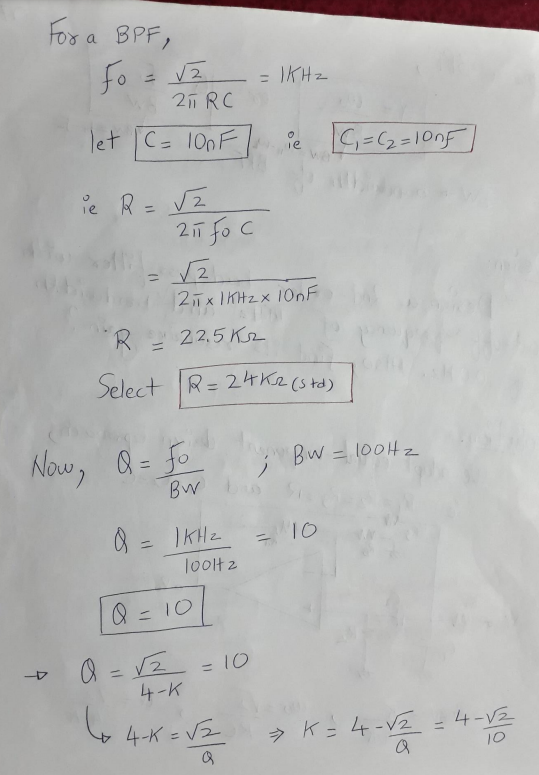 For a BPF,
fo = √2 / 2π RC = 1KHz
let C = 10nF ie C₁=C₂=10nF
ie R = √2 / 2π fo C
= √2 / 2π x 1KHz x 10nF
R = 22.5KΩ
Select R = 24KΩ (std)
Now, Q = fo / BW ; BW = 100Hz
Q = 1KHz / 100Hz = 10
Q = 10
→ Q = √2 / 4-K = 10
↳ 4-K = √2 / Q ⇒ K = 4-√2 / Q = 4-√2 / 10